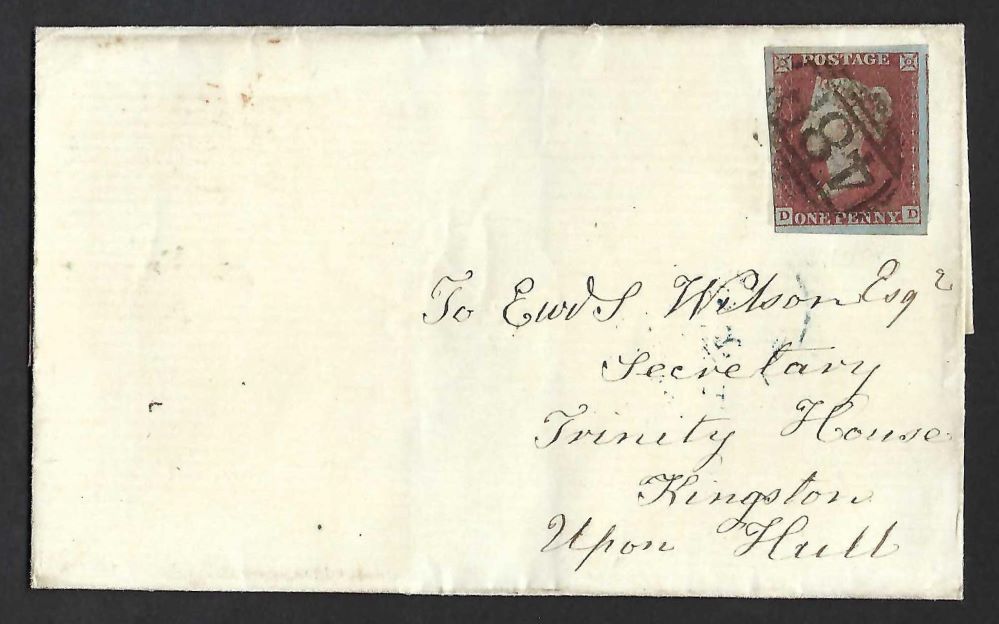 POSTAGE
487
D ONE PENNY. D
To Ewd S Wilson Esqr
Secretary
Trinity House
Kingston
Upon Hull